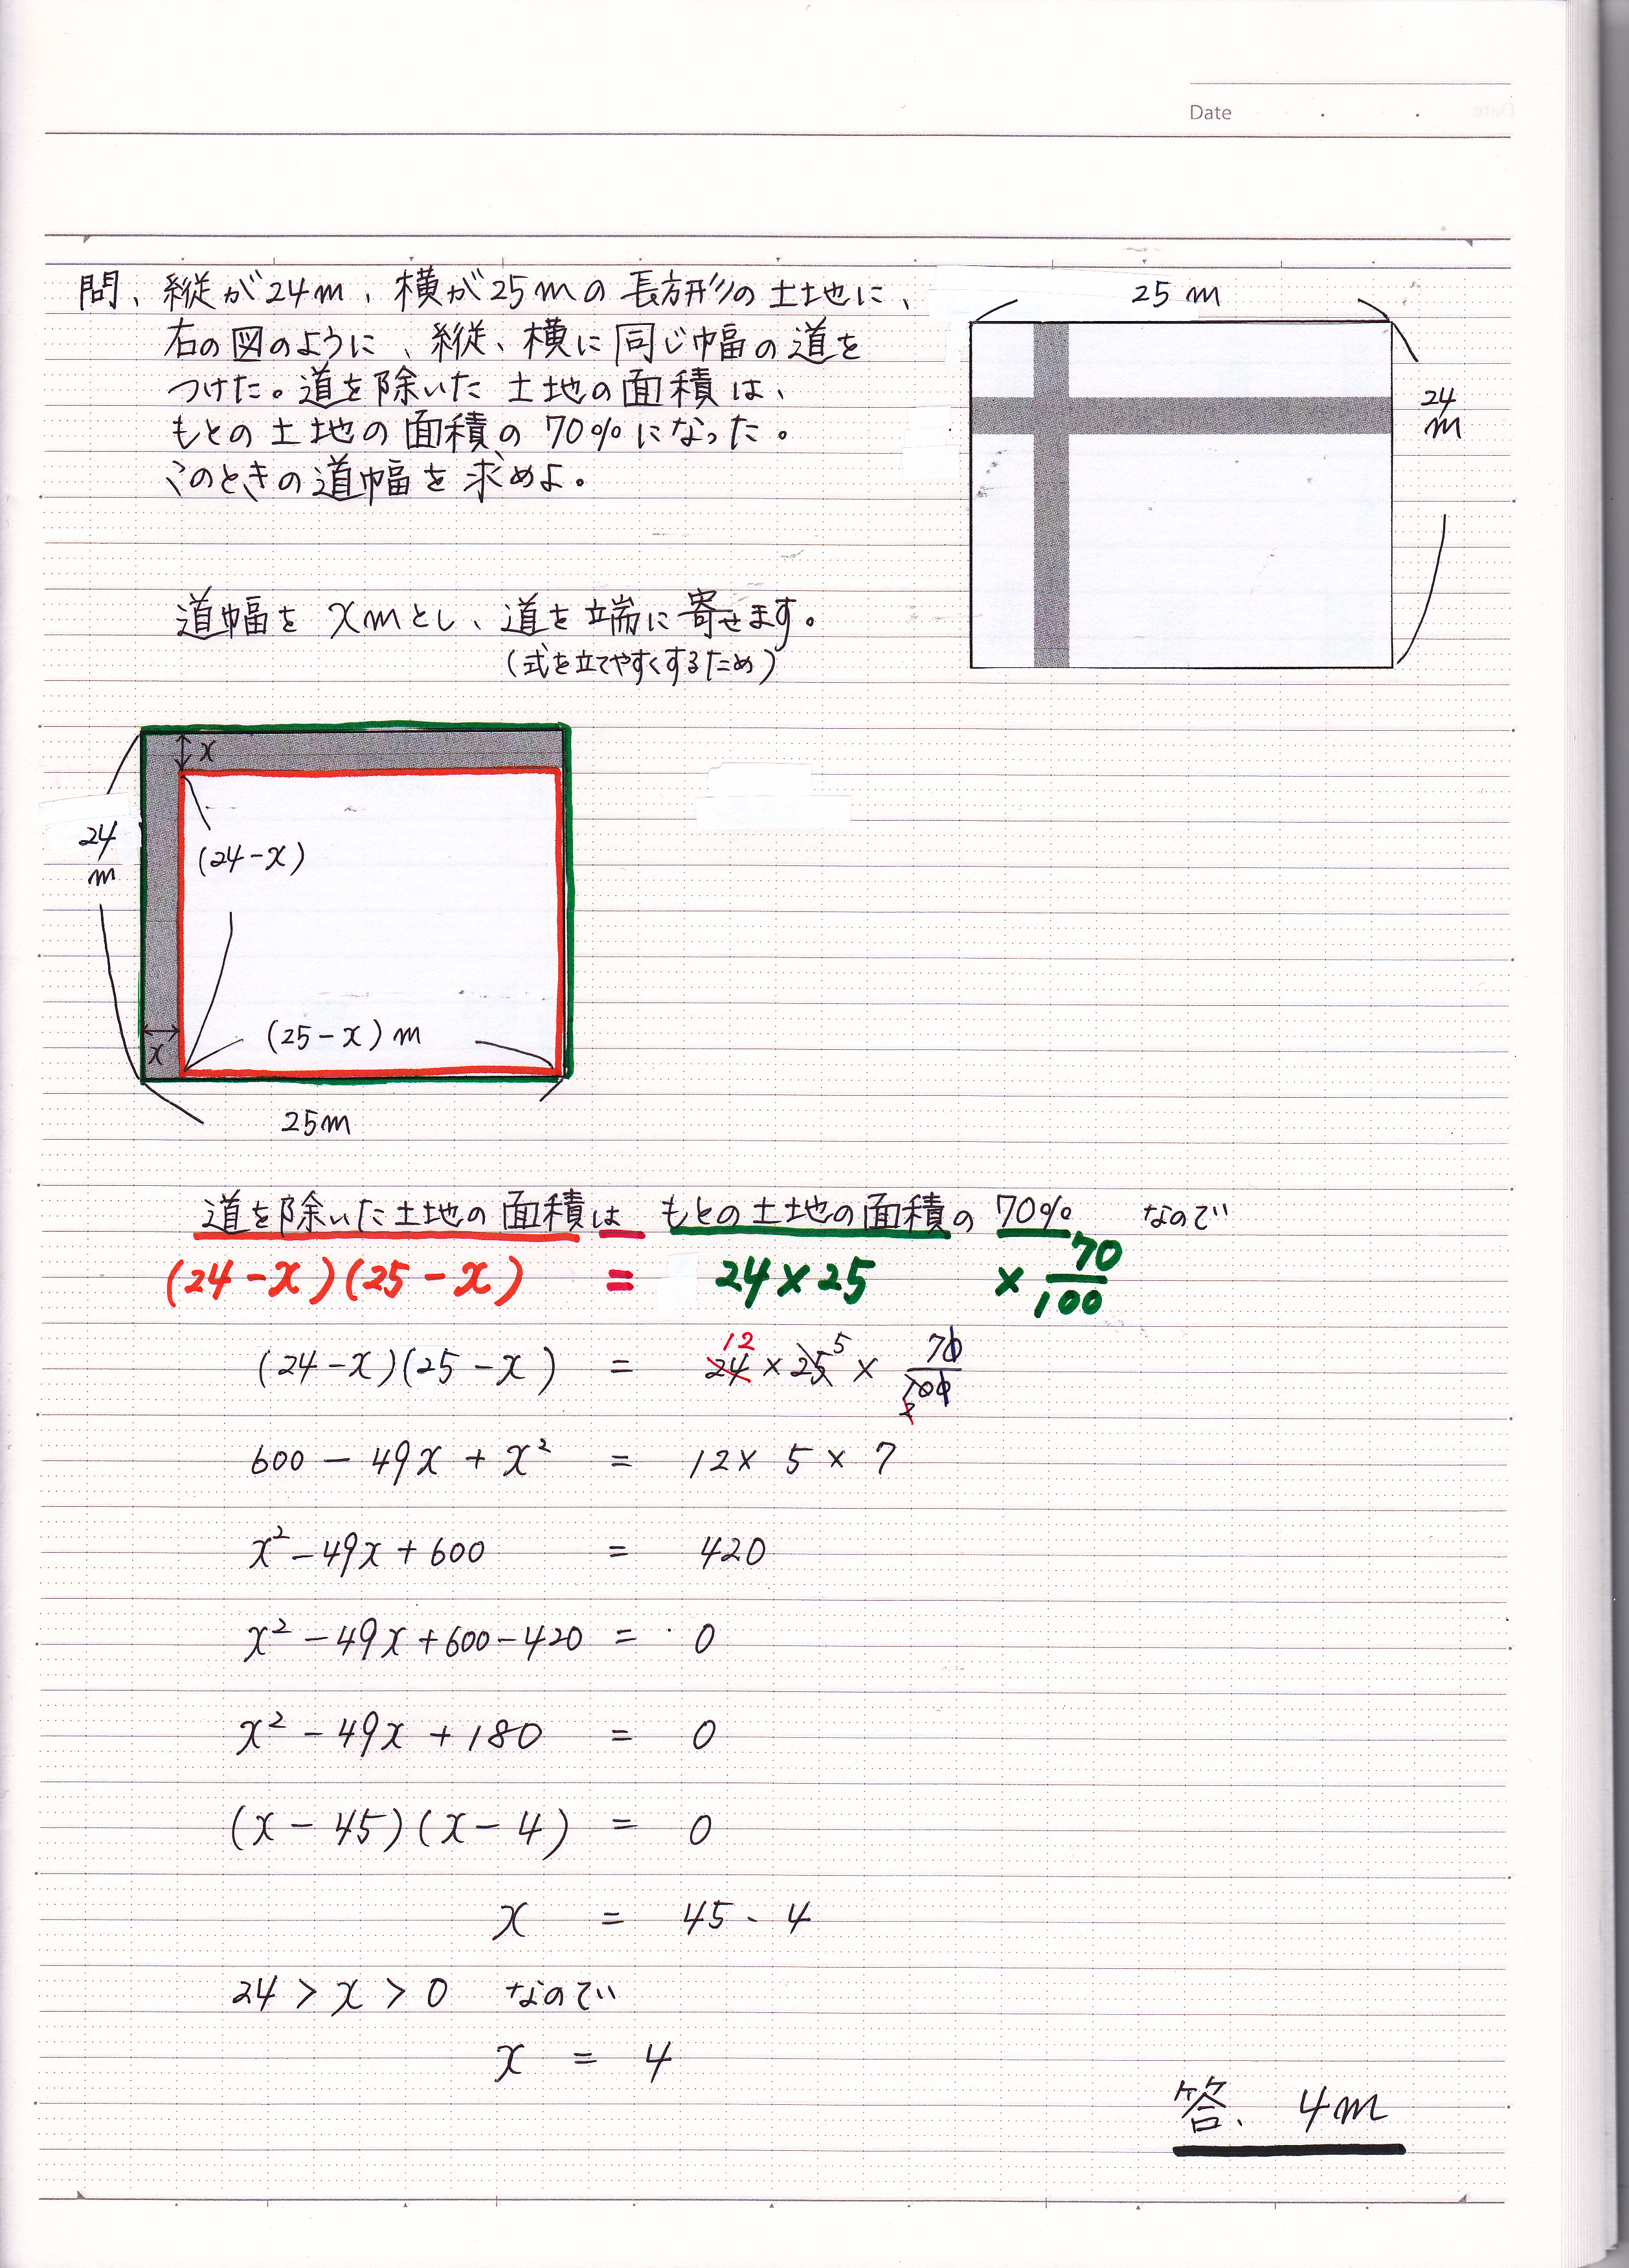 Date
問、縦が24m、横が25mの長方形の土地に、
右の図のように、縦、横に同じ巾幅の道を
つけた。道を除いた土地の面積は、
もとの土地の面積の70%になった。
このときの道幅を求めよ。
25 m
24
m
道幅をxmとし、道を端に寄せます。
(式を立てやすくするため)
x
24
m
(24-x)
(25-x)m
x
25m
道を除いた土地の面積は もとの土地の面積の 70% なので
(24-x)(25-x) = 24×25 × 70/100
(24-x)(25-x) = 24×25× 70/100
12 5
2
600-49x+x² = 12×5×7
x²-49x+600 = 420
x²-49x+600-420 = 0
x²-49x+180 = 0
(x-45)(x-4) = 0
x = 45、4
24>x>0 なので
x = 4
答、4m